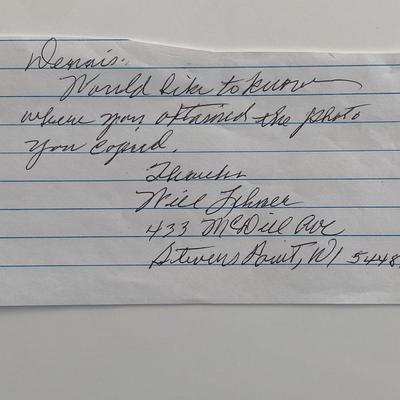 Dennis.
Would like to know
where you obtained the photo
you copied.
Thanks
Will
433 McDill Ave
Stevens Point, WI 5448